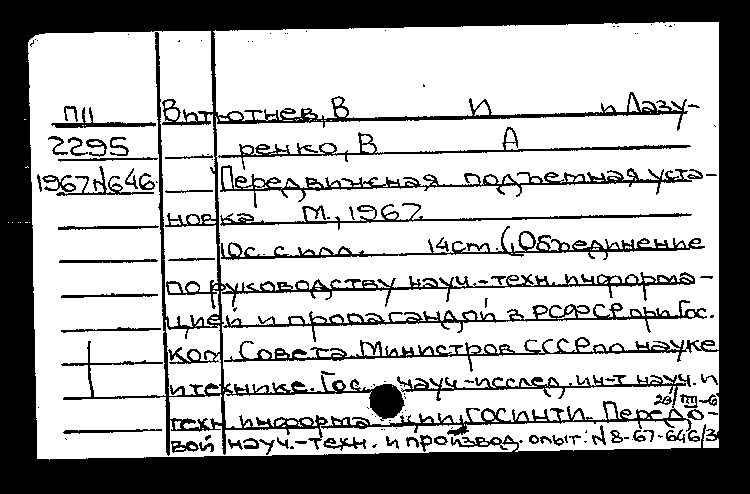 П11 Витютнев, В И и Лазу-
2295 ренко, В А
1967 N646 Передвижная подъемная уста-
новка. М., 1967.
10с. с илл. 14см. (Объединение
по руководству науч.-техн. информа-
цией и пропагандой в РСФСР при Гос.
ком. Совета Министров СССР по науке
и технике. Гос. науч.-исслед. ин-т науч. и
техн. информации, ГОСИНТИ. Передо-
вой науч.-техн. и производ. опыт: N 8-67-646/30